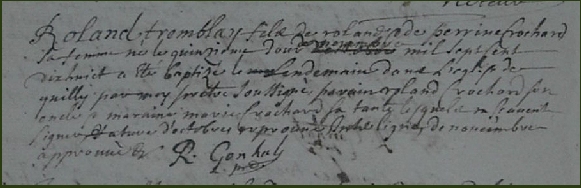 Roland tremblay fils de roland et de perrine frochard
sa femme né le quinzieme jour mil sept sent
dixhuict a été baptizé le lendemain dans l'eglise de
quilly par moy prêtre soussigné, parain roland frochard son
oncle et maraine marie frochard sa tante lesquels ne scavent
signer rature d'octobre interligne de novembre
approuvé R. Gonhal